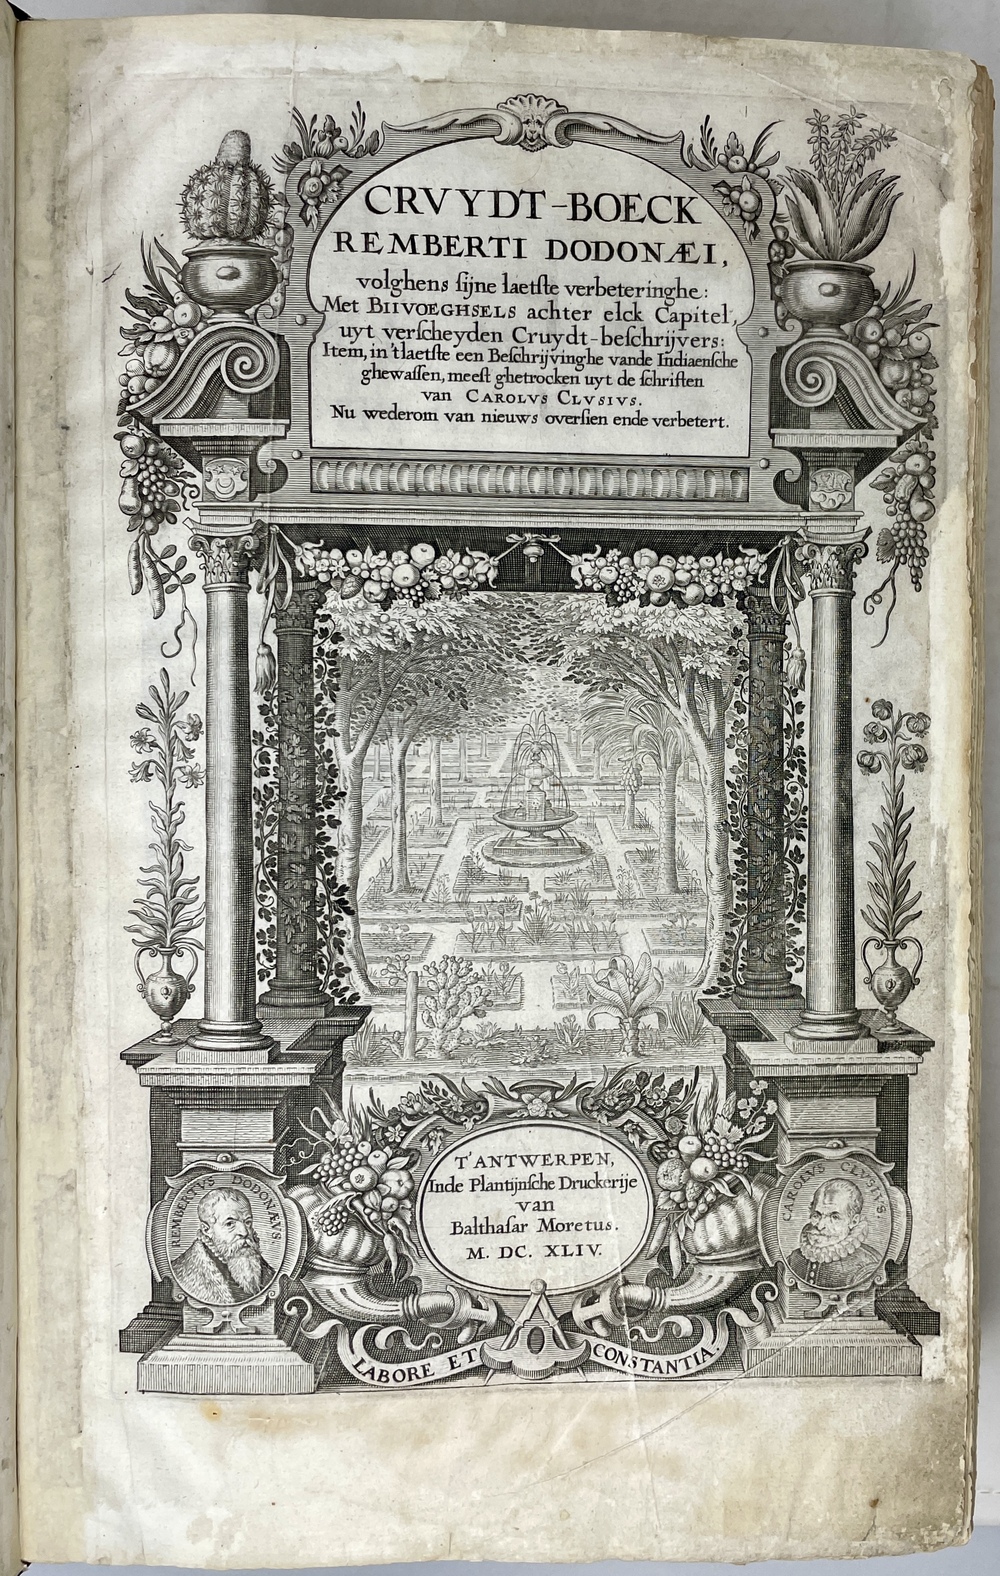 CRVYDT-BOECK
REMBERTI DODONÆI,
volghens ſijne laetſte verbeteringhe:
Met BIIVOEGHSELS achter elck Capitel,
uyt verſcheyden Cruydt-beſchrijvers:
Item, in 't laetſte een Beſchrijvinghe vande Indiaenſche
ghewaſſen, meeſt ghetrocken uyt de ſchriften
van CAROLVS CLVSIVS.
Nu wederom van nieuws overſien ende verbetert.
T'ANTWERPEN,
Inde Plantijnſche Druckerije
van
Balthaſar Moretus.
M. DC. XLIV.
REMBERTVS DODONÆVS
CAROLVS CLVSIVS.
LABORE ET CONSTANTIA.